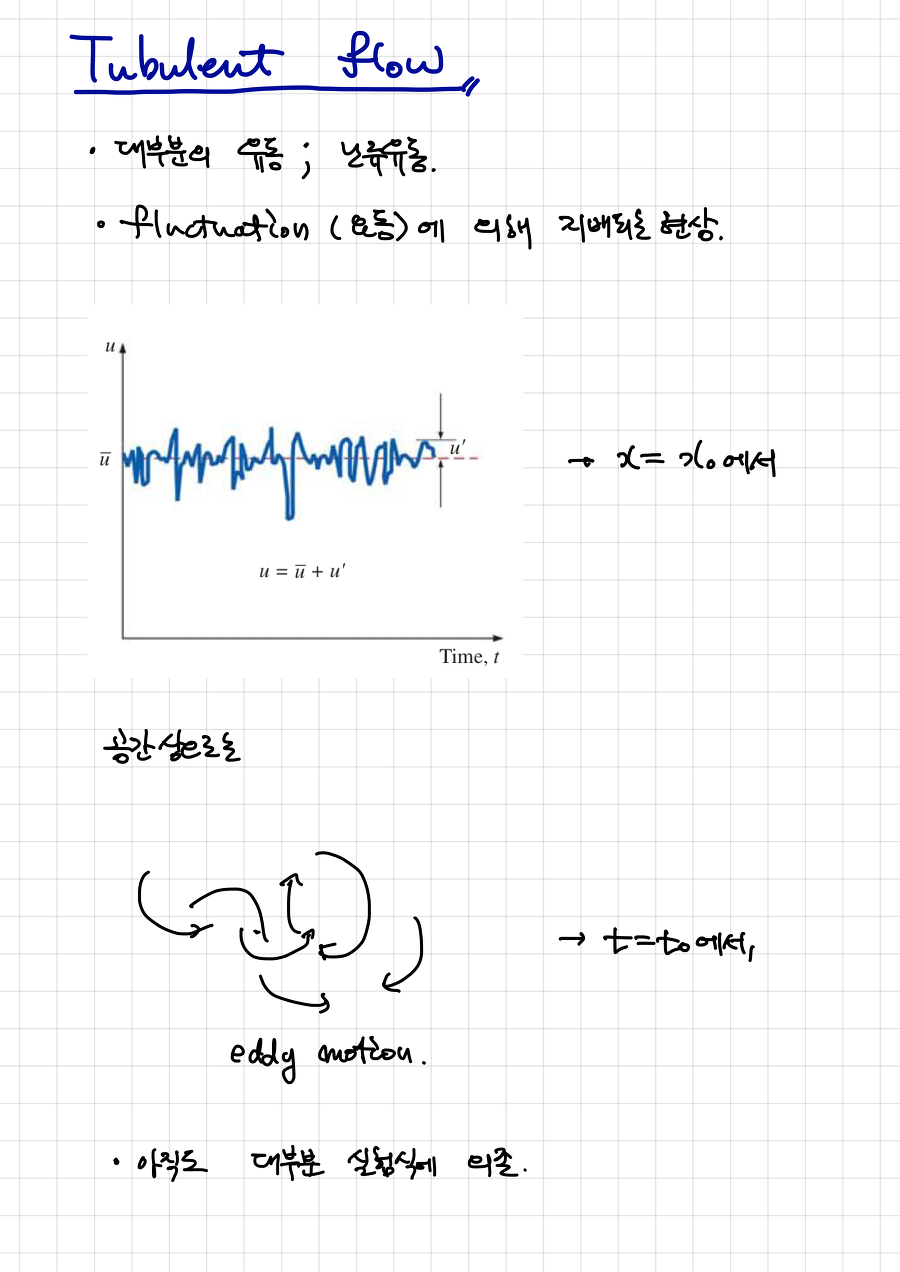 Tubulent flow
· 대부분의 유동 ; 난류유동.
· fluctuation (요동)에 의해 지배되는 현상.
u
u̅
u′
→ x = x₀ 에서
u = u̅ + u′
Time, t
공간상으로는
→ t=t₀에서,
eddy motion.
· 아직도 대부분 실험식에 의존.